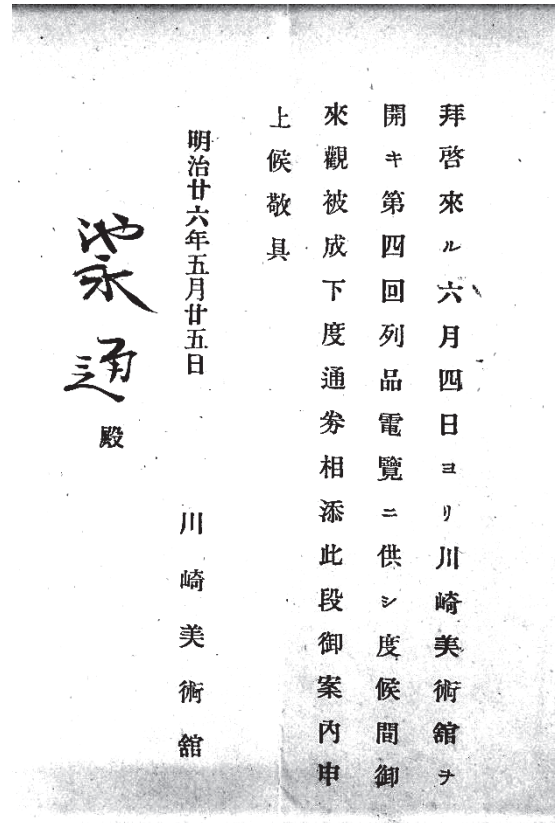 拜啓來ル六月四日ヨリ川崎美術舘ヲ
開キ第四回列品電覽ニ供シ度候間御
來觀被成下度通劵相添此段御案内申
上候敬具
明治廿六年五月廿五日
川崎美術舘
池永通殿